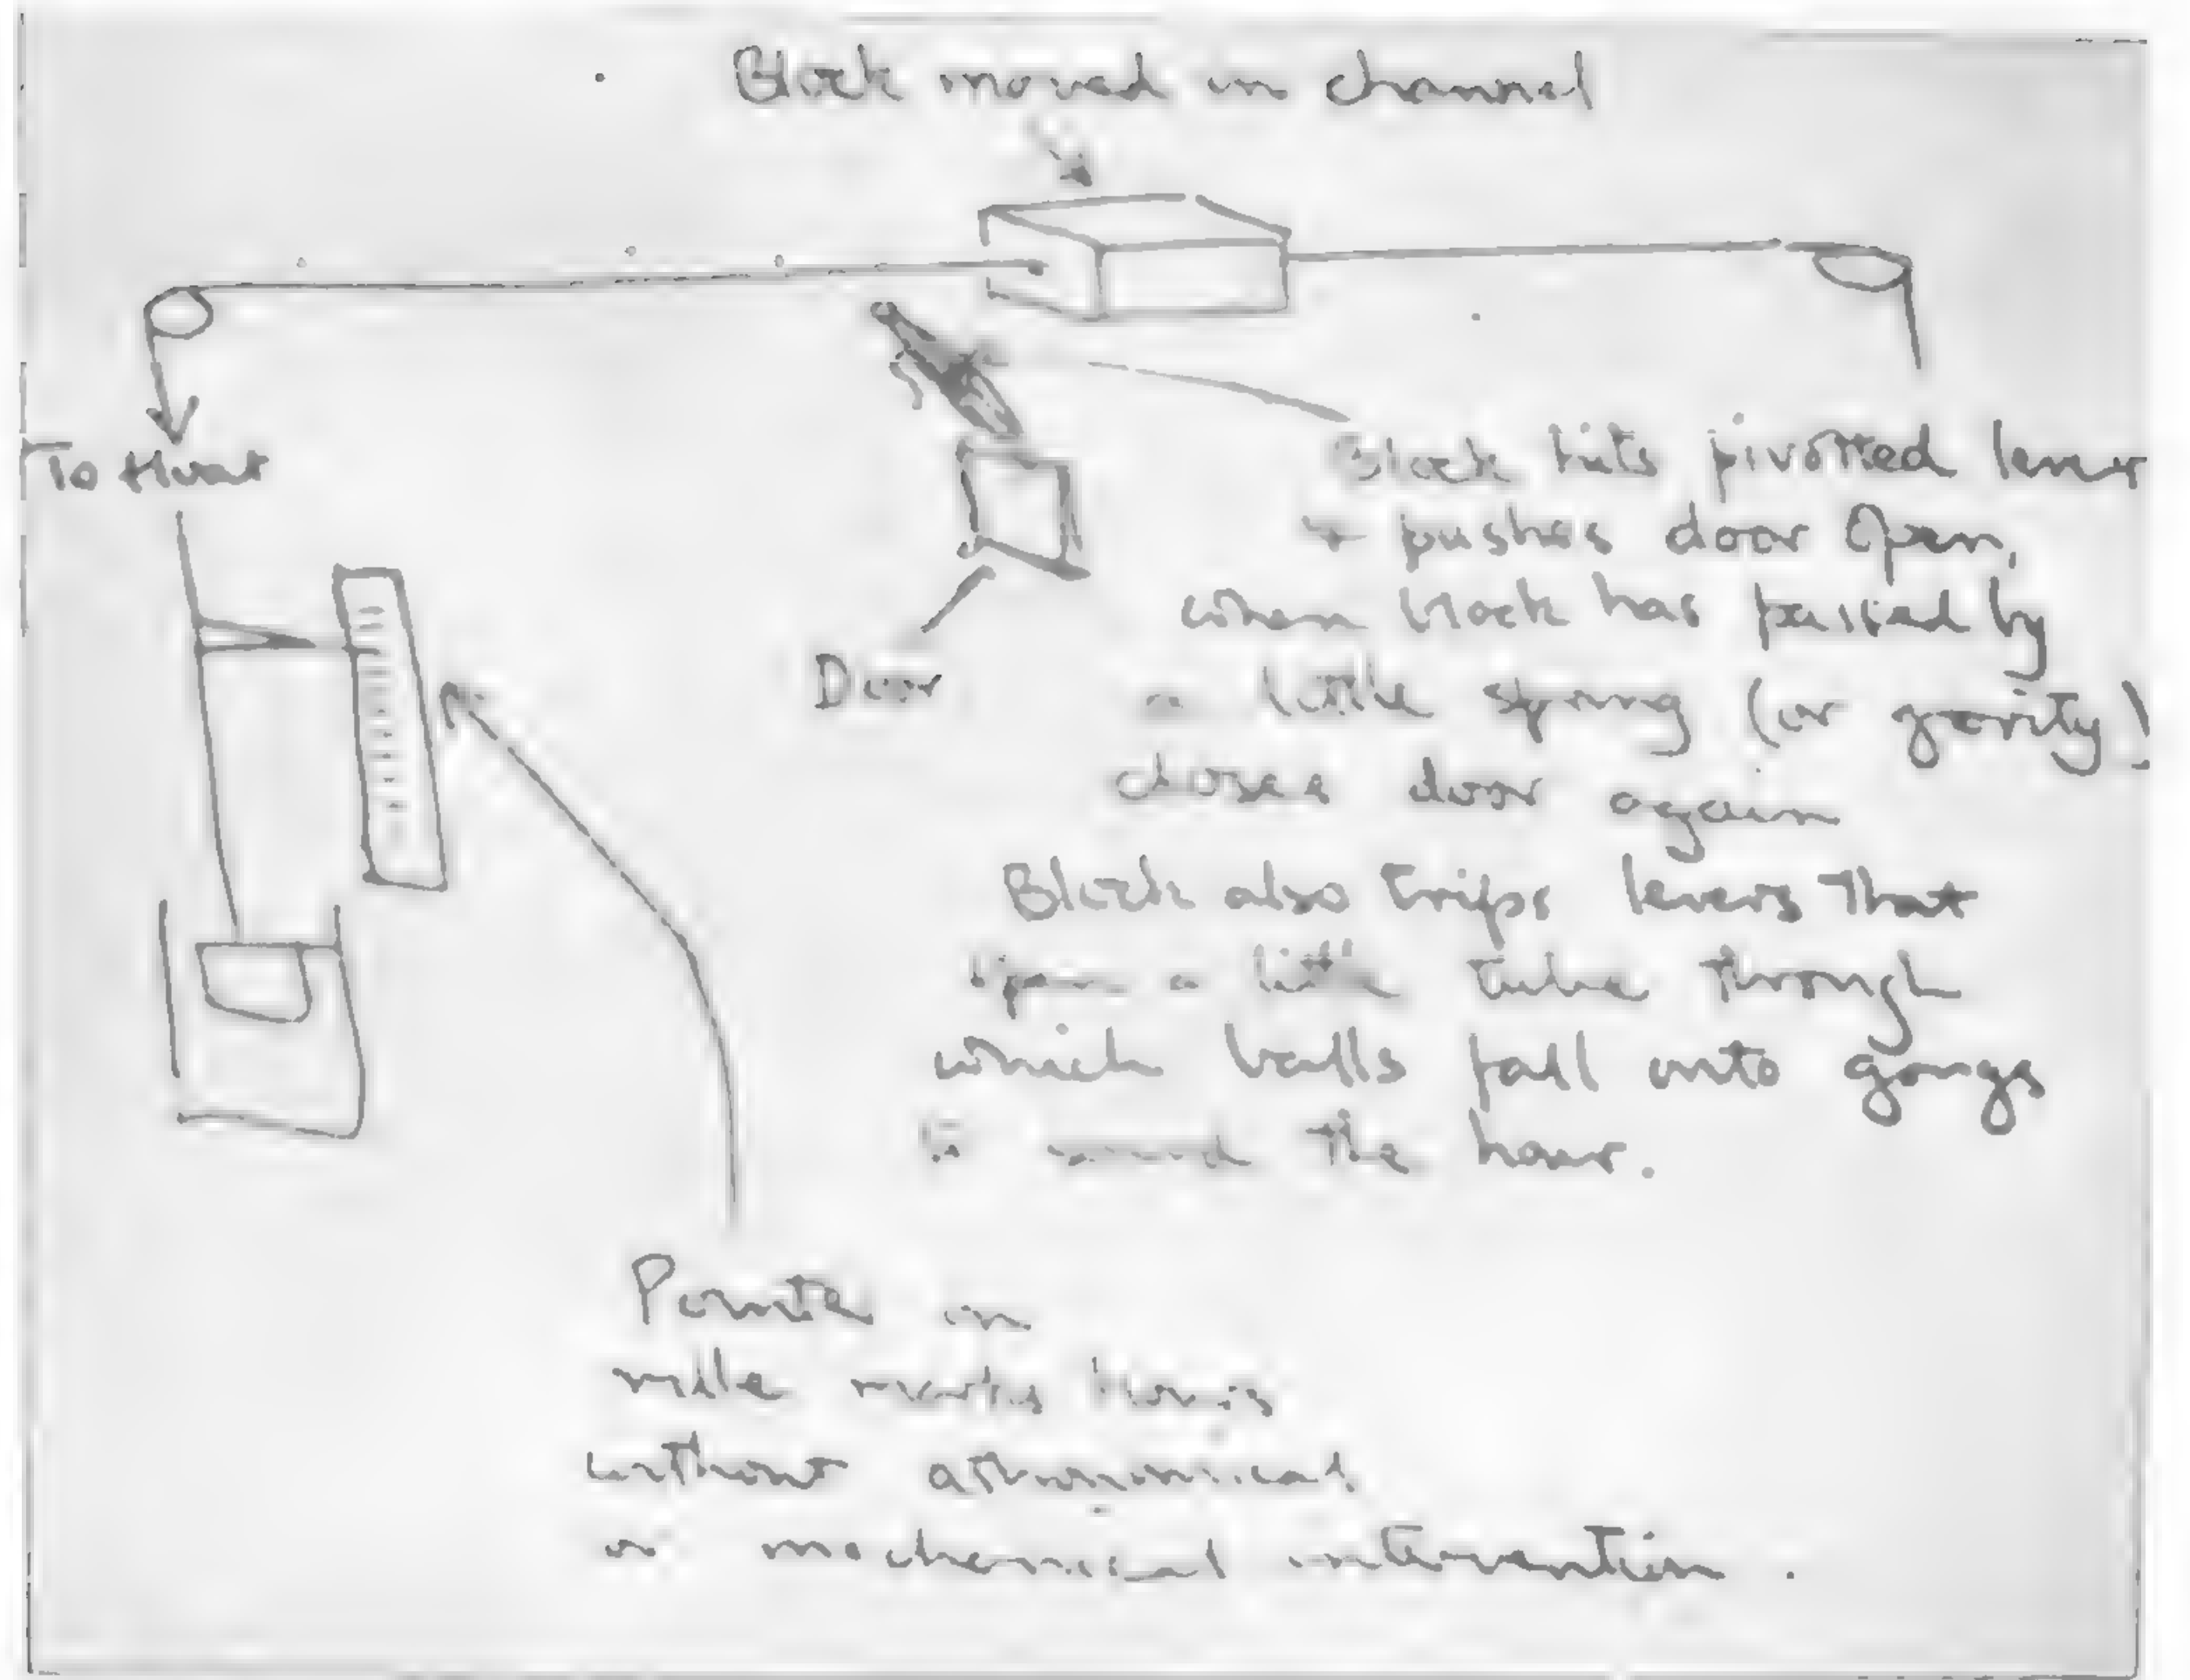 Block moved in channel
To float
Block hits pivotted lever
+ pushes door open,
when block has passed by
a little spring (or gravity)
closes door again
Door
Block also trips levers that
open a little tube through
which balls fall onto gongs
to sound the hour.
Pointer on
rule marks hours
without astronomical
or mechanical intervention.